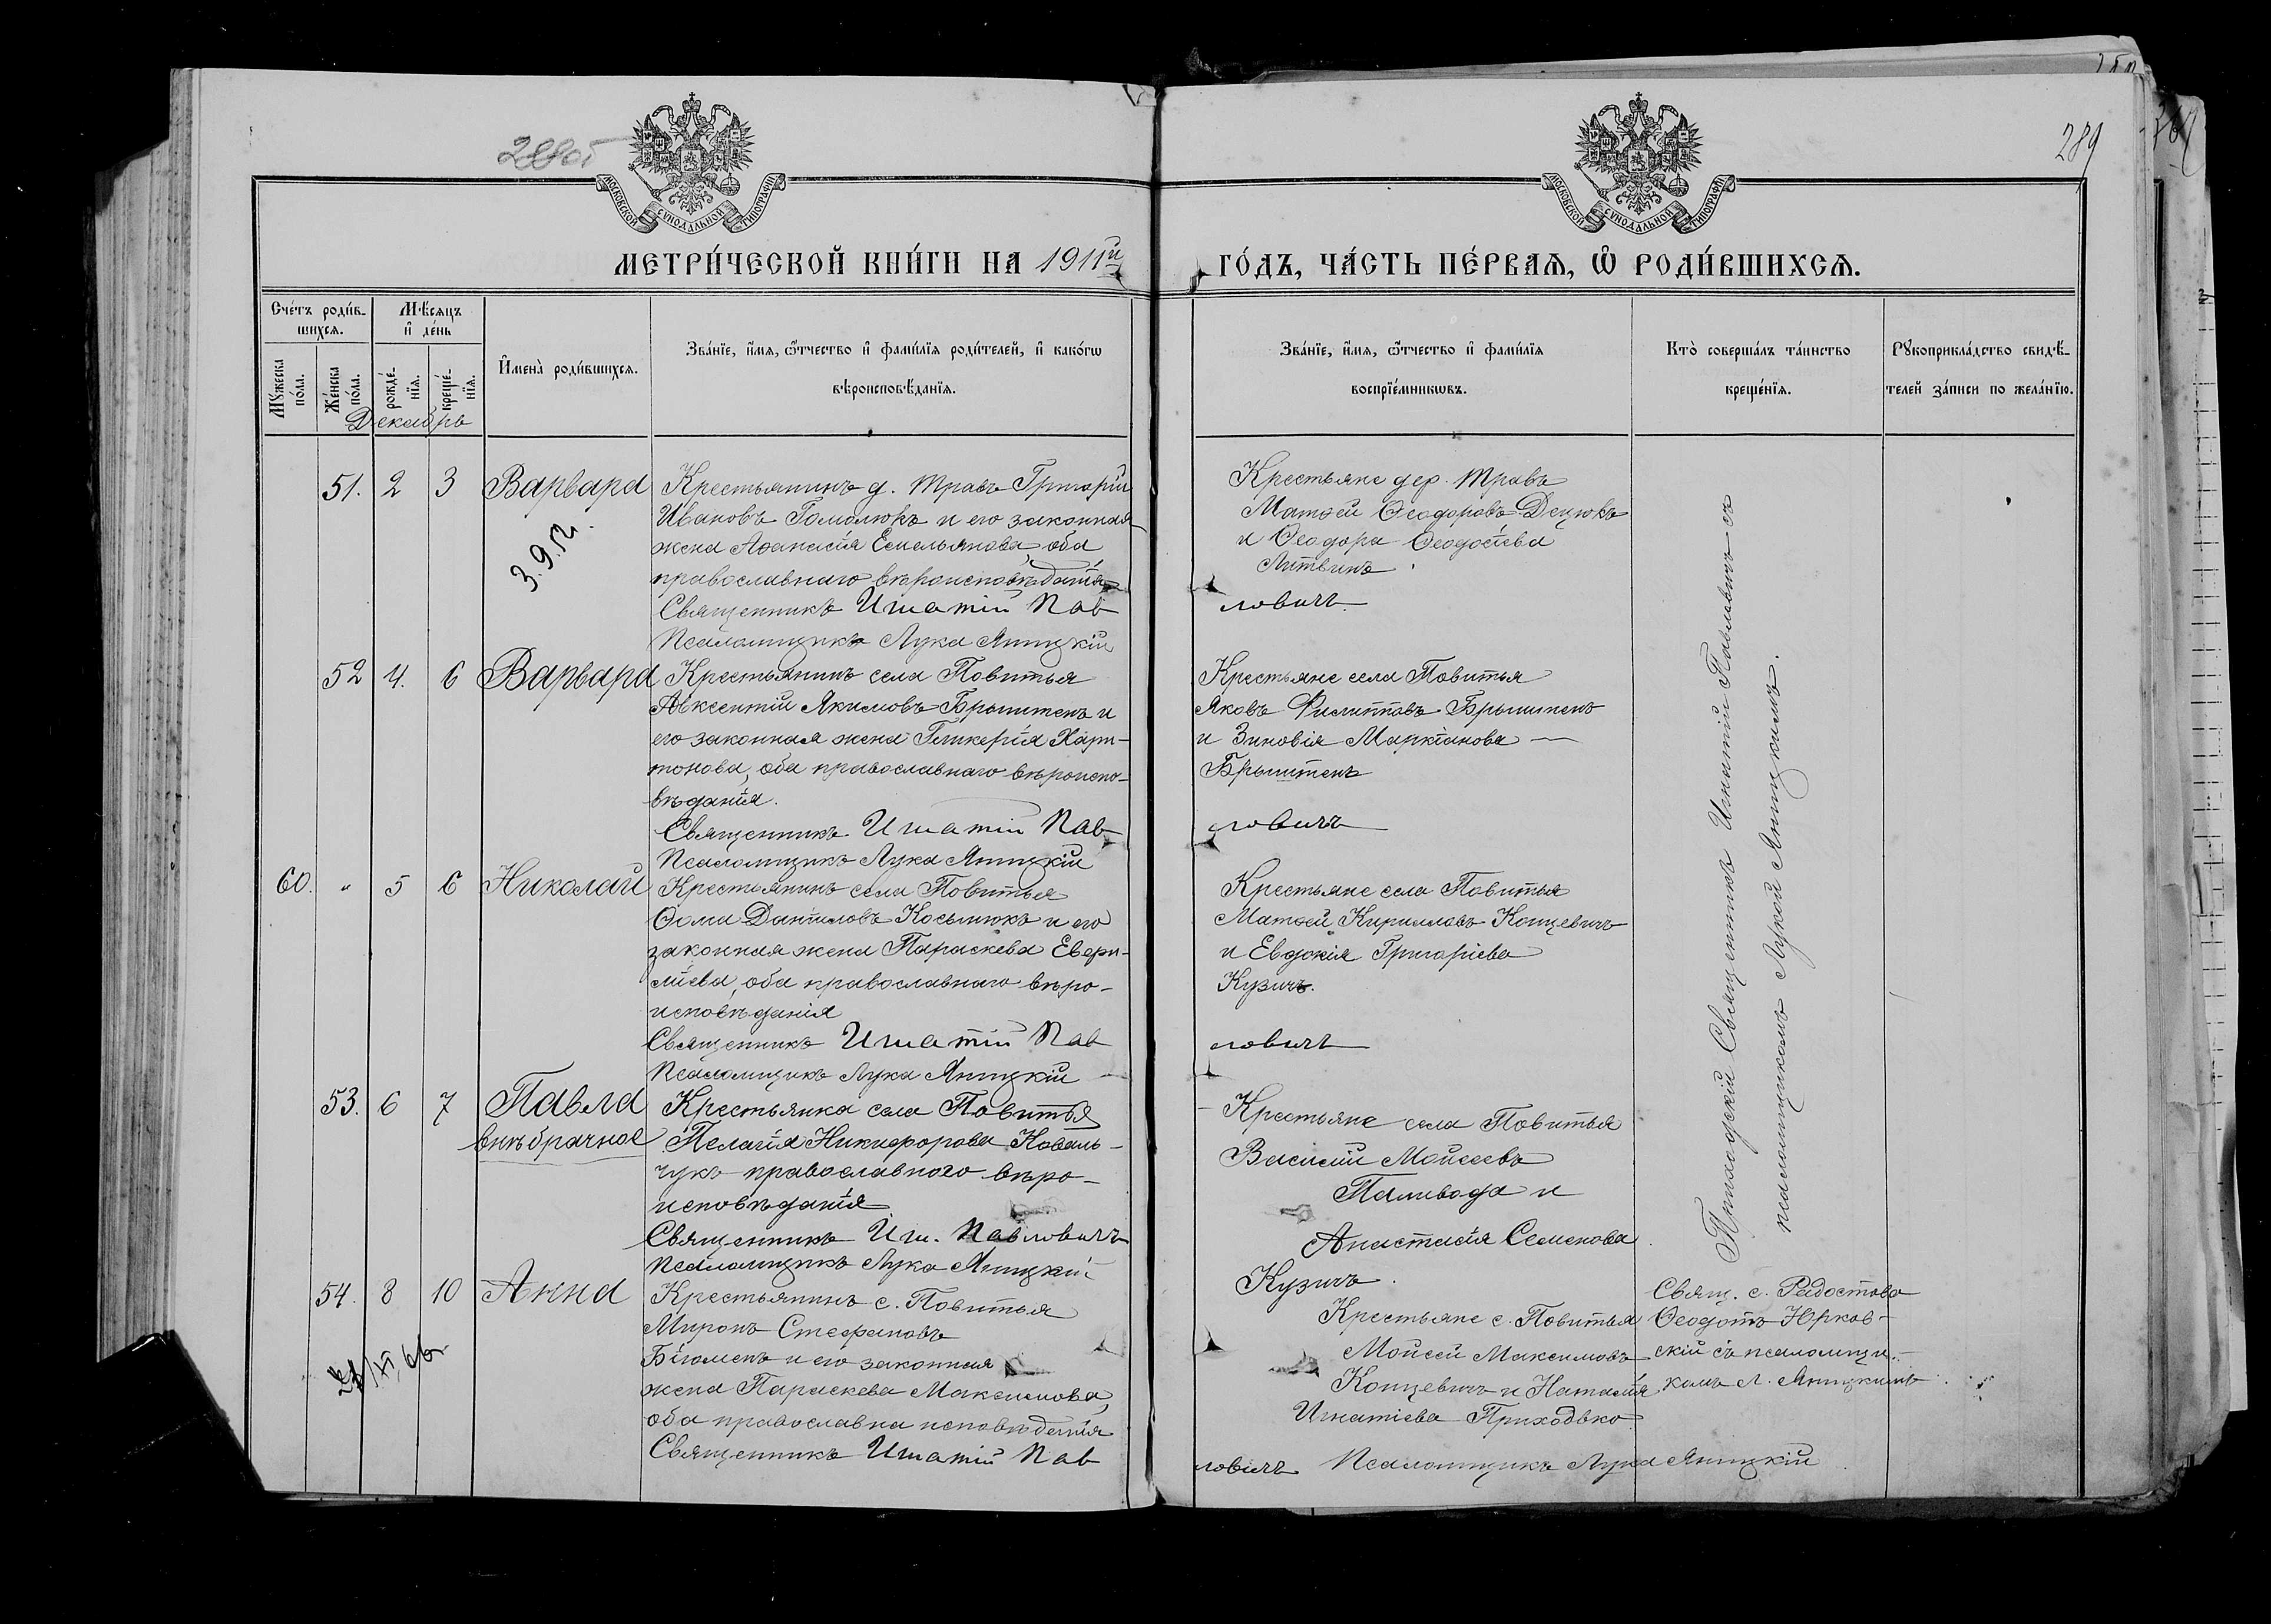 288об
289
МОСКОВСКОЙ СѴНОДАЛЬНОЙ ТИПОГРАФІИ
МОСКОВСКОЙ СѴНОДАЛЬНОЙ ТИПОГРАФІИ
МЕТРИ́ЧЕСКОЙ КНИ́ГИ НА 1911й
ГО́ДЪ, ЧА́СТЬ ПЕ́РВАѦ, Ѡ РОДИ́ВШИХСѦ.
Сче́тъ роди́в-
шихсѧ.
Мѣ́сѧцъ
и҆ де́нь
Мꙋ́жеска по́ла.
Же́нска по́ла.
рожде́-
нїѧ.
креще́-
нїѧ.
И҆мена̀ роди́вшихсѧ.
Зва́нїе, и҆́мѧ, ѻ҆́тчество и҆ фами́лїѧ роди́телей, и҆ како́гѡ
вѣроисповѣ́данїѧ.
Зва́нїе, и҆́мѧ, ѻ҆́тчество и҆ фами́лїѧ
воспрїе́мникѡвъ.
Кто̀ соверша́лъ та́инство
креще́нїѧ.
Рꙋкоприкла́дство свидѣ́-
телей за́писи по жела́нїю.
Декабрь
51. 2 3 Варвара
3.9.52.
Крестьянинъ д. Травъ Григорій
Ивановъ Гомолюкъ и его законная
жена Аѳанасія Емельянова, оба
православнаго вѣроисповѣданія
Священникъ Игнатій Пав
ловичъ
Псаломщикъ Лука Яницкій
Крестьяне дер. Травъ
Матѳей Ѳеодоровъ Децюкъ
и Ѳеодора Ѳеодосіева
Литвинъ
52 4. 6 Варвара
Крестьянинъ села Повитья
Авксентій Якимовъ Брынтенъ и
его законная жена Гликерія Хари-
тонова, оба православнаго вѣроиспо-
вѣданія.
Священникъ Игнатій Пав
ловичъ
Псаломщикъ Лука Яницкій
Крестьяне села Повитья
Яковъ Филипповъ Брынтенъ
и Зиновія Маркіанова —
Брынтенъ
60. " 5 6 Николай
Крестьянинъ села Повитья
Ѳома Даниловъ Косьминъ и его
законная жена Параскева Евери-
ліева, оба православнаго вѣро-
исповѣданія
Священникъ Игнатій Пав
ловичъ
Псаломщикъ Лука Яницкій
Крестьяне села Повитья
Матѳей Кирилловъ Концевичъ
и Евдокія Григоріева
Кузичъ.
53. 6 7 Павла
внѣбрачное
Крестьянка села Повитья
Пелагія Никифорова Коваль-
чукъ православного вѣро-
исповѣданія
Священникъ Игн. Павловичъ
Псаломщикъ Лука Яницкій
Крестьяне села Повитья
Василій Мойсеевъ
Паливода и
Анастасія Семенова
Кузичъ.
54. 8 10 Анна
Крестьянинъ с. Повитья
Миронъ Стефановъ
Бігоменъ и его законная
жена Параскева Максимова,
оба православна исповѣданія
Священникъ Игнатій Пав
ловичъ Псаломщикъ Лука Яницкій
Крестьяне с. Повитья
Мойсей Максимовъ
Концевичъ и Наталія
Игнатіева Приходько
Приходскій Священникъ Игнатій Павловичъ съ
псаломщикомъ Лукой Яницкимъ.
Свящ. с. Радостова
Ѳеодотъ Юрков-
скій съ псаломщи-
комъ Л. Яницкимъ